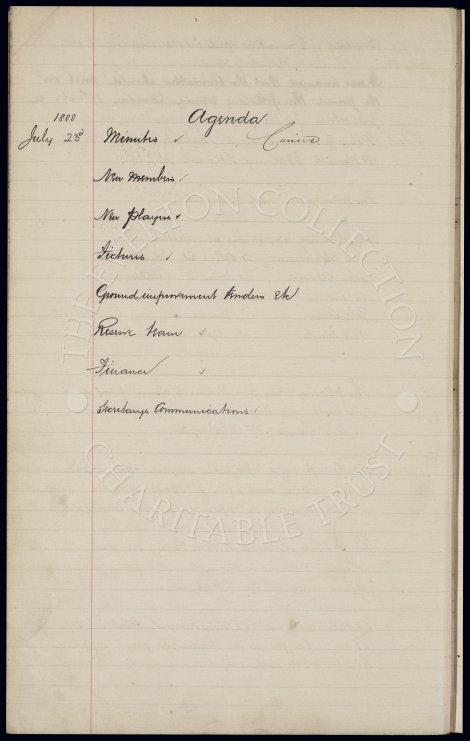 1888
Agenda
July 23d Minutes ✓
New members ✓
New players ✓
Fixtures ✓
Ground improvement tenders Etc
Reserve team ✓
Finance ✓
Secretarys Communications ✓
THE EVERTON COLLECTION
CHARITABLE TRUST